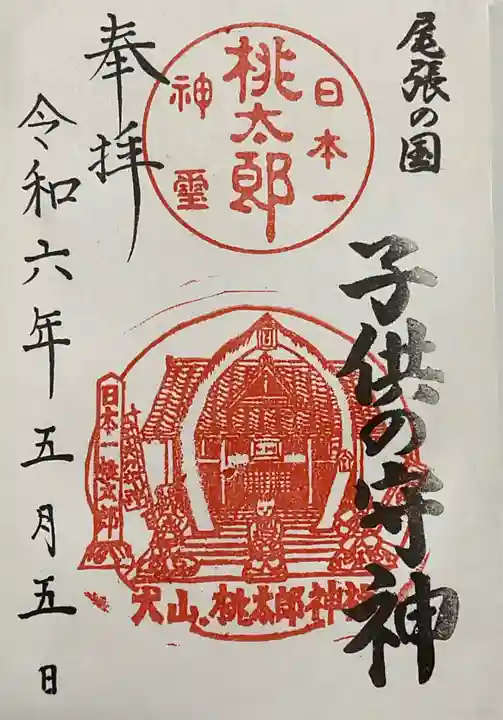 尾張の国
子供の守神
日本一
桃太郎
神璽
日本一桃太郎
犬山.桃太郎神社
奉拝
令和六年五月五日